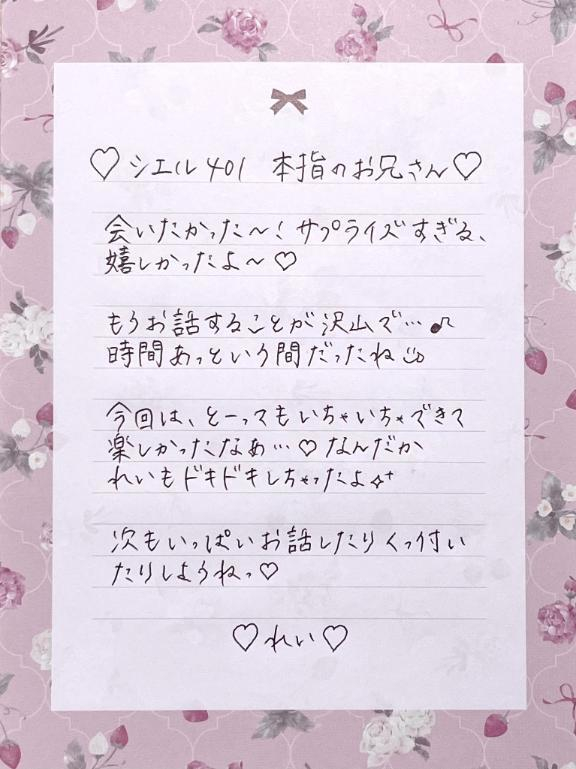 ♡シエル401 本指のお兄さん♡
会いたかった〜！サプライズすぎる、
嬉しかったよ〜♡
もうお話することが沢山で…♪
時間あっという間だったね
今回は、とーってもいちゃいちゃできて
楽しかったなぁ…♡なんだか
れいもドキドキしちゃったよ✧⁺
次もいっぱいお話したりくっ付い
たりしようねっ♡
♡れい♡